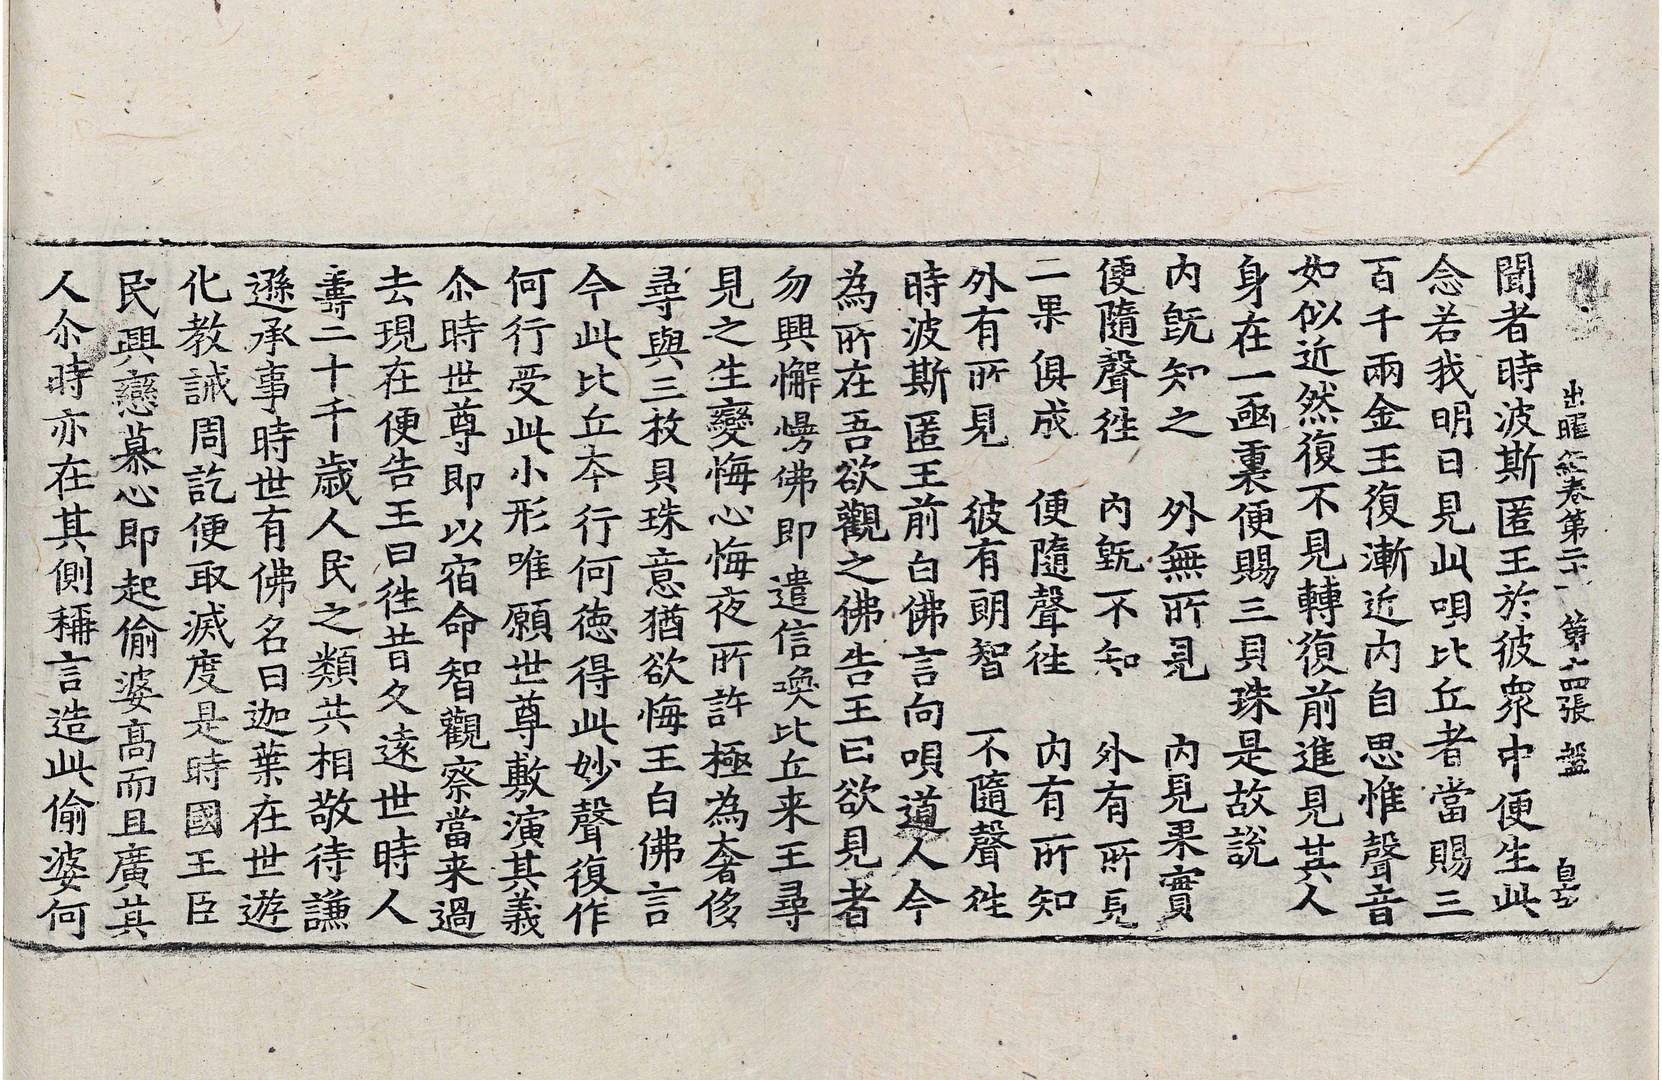 出曜經卷第二十一 第十四張 盤
聞者時波斯匿王於彼衆中便生此
念若我明日見此唄比丘者當賜三
百千兩金王復漸近内自思惟聲音
如似近然復不見轉復前進見其人
身在一函裏便賜三貝珠是故説
内既知之 外無所見 内見果實
便隨聲徃 内既不知 外有所見
二果俱成 便隨聲徃 内有所知
外有所見 彼有朗智 不隨聲徃
時波斯匿王前白佛言向唄道人今
為所在吾欲觀之佛告王曰欲見者
勿興懈慢佛即遣信喚比丘来王尋
見之生變悔心悔夜所許極為奢侈
尋與三枚貝珠意猶欲悔王白佛言
今此比丘夲行何徳得此妙聲復作
何行受此小形唯願世尊敷演其義
尒時世尊即以宿命智觀察當来過
去現在便告王曰徃昔久遠世時人
壽二十千歳人民之類共相敬待謙
遜承事時世有佛名曰迦葉在世遊
化教誡周訖便取滅度是時國王臣
民興戀慕心即起偷婆高而且廣其
人尒時亦在其側稱言造此偷婆何